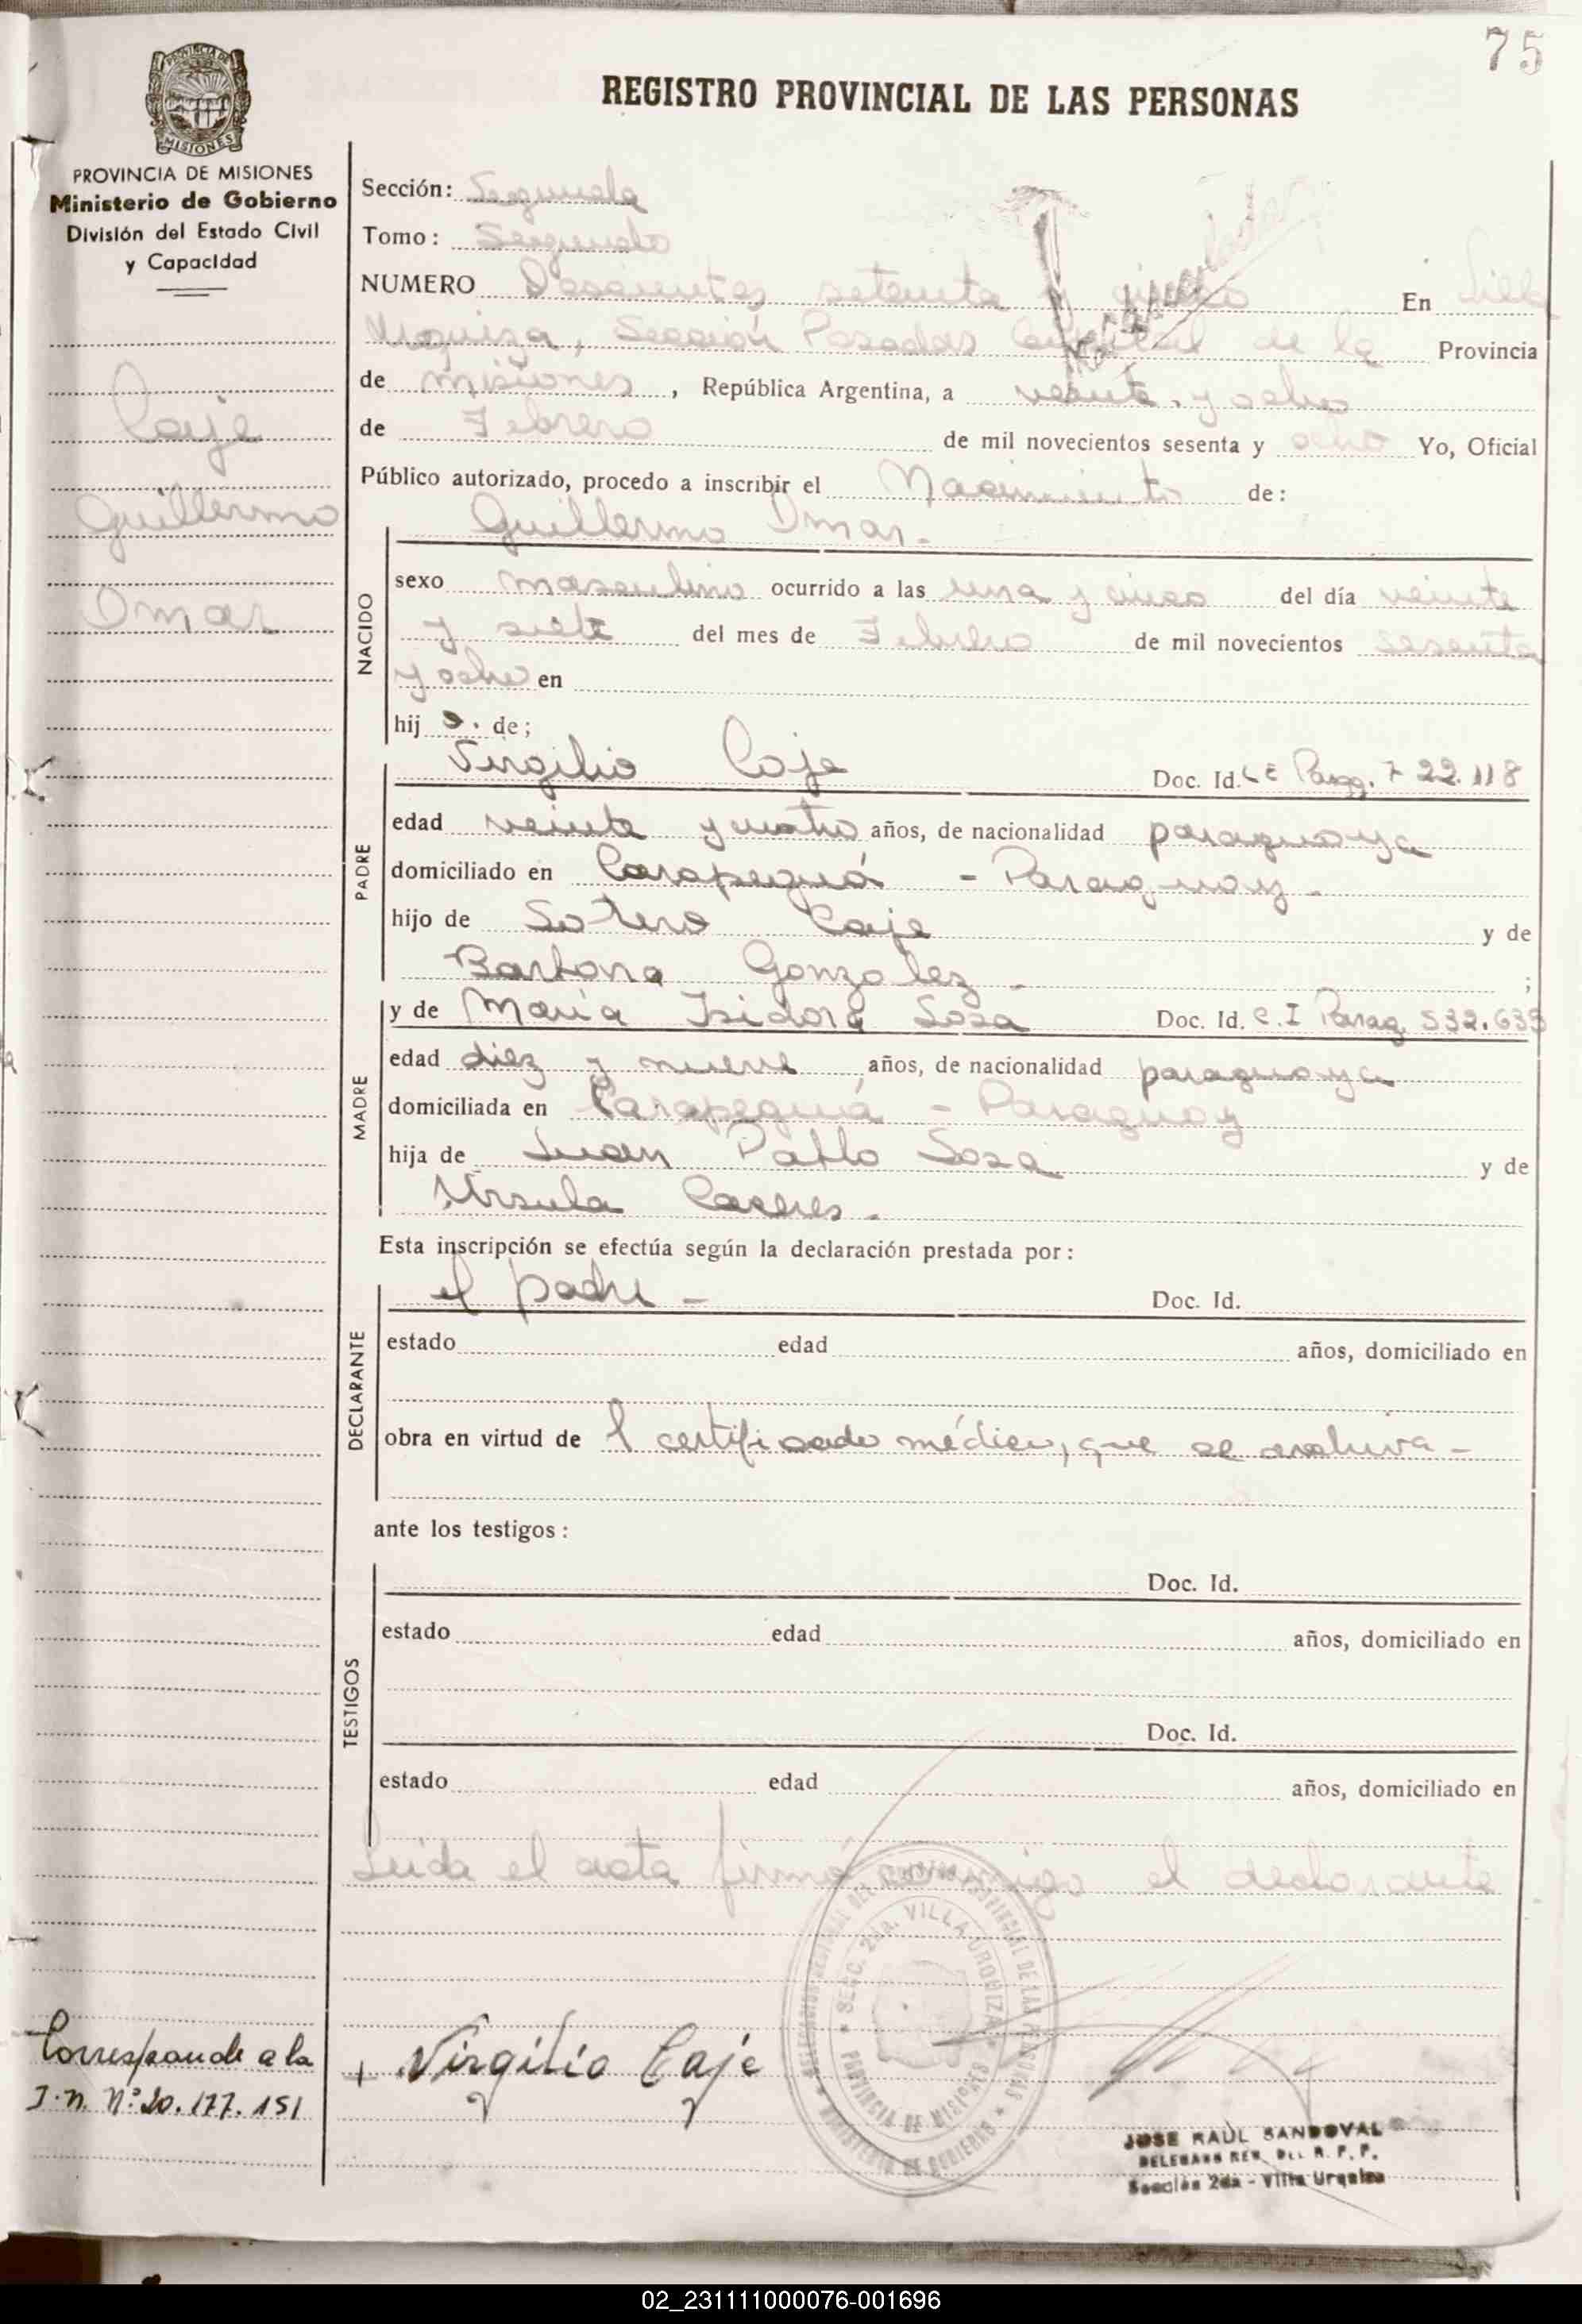 75
PROVINCIA DE
MISIONES
REGISTRO PROVINCIAL DE LAS PERSONAS
PROVINCIA DE MISIONES
Ministerio de Gobierno
División del Estado Civil
y Capacidad
Caje
Guillermo
Omar
Sección: Segunda
Tomo: Segundo
NUMERO Doscientos setenta y cinco En Villa
Urquiza, Sección Posadas Capital de la Provincia
de Misiones, República Argentina, a veinte y ocho
de Febrero de mil novecientos sesenta y ocho Yo, Oficial
Público autorizado, procedo a inscribir el Nacimiento de:
Guillermo Omar.-
NACIDO
sexo masculino ocurrido a las una y cinco del día veinte
y siete del mes de Febrero de mil novecientos sesenta
y ocho en
hij o. de;
PADRE
Virgilio Caje Doc. Id. L E Parag. 722.118
edad veinte y cuatro años, de nacionalidad paraguaya
domiciliado en Carapeguá - Paraguay -
hijo de Sotero Caje y de
Barbara Gonzalez - ;
MADRE
y de María Isidora Sosa Doc. Id. C.I Parag 532.633
edad diez y nueve años, de nacionalidad paraguaya
domiciliada en Carapeguá - Paraguay
hija de Juan Pablo Sosa y de
Ursula Caceres -
Esta inscripción se efectúa según la declaración prestada por:
DECLARANTE
el padre - Doc. Id.
estado edad años, domiciliado en
obra en virtud de l certificado médico, que se archiva -
ante los testigos:
TESTIGOS
Doc. Id.
estado edad años, domiciliado en
Doc. Id.
estado edad años, domiciliado en
Leida el acta firmó conmigo el declarante
SECC. 2da. VILLA URQUIZA
PROVINCIA DE MISIONES
MINISTERIO DE GOBIERNO
Corresponde a la
I.N. Nº 20.177.151
+ Virgilio Caje
JOSE RAUL SANDOVAL
DELEGADO REG. DEL R. P. P.
Sección 2da - Villa Urquiza
02_231111000076-001696